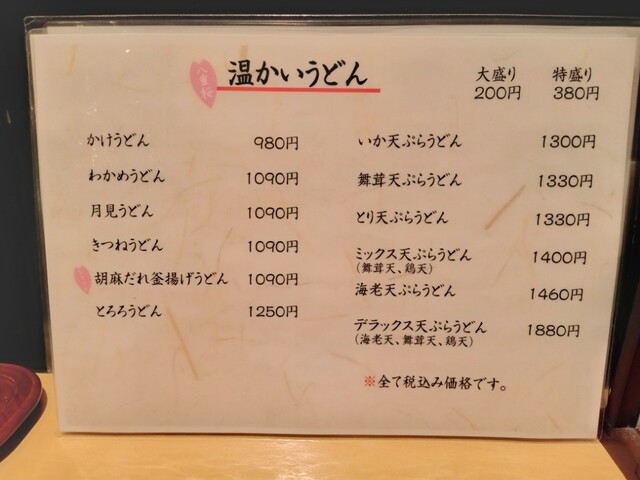 温かいうどん
大盛り 特盛り
200円 380円
かけうどん 980円
わかめうどん 1090円
月見うどん 1090円
きつねうどん 1090円
胡麻だれ釜揚げうどん 1090円
とろろうどん 1250円
いか天ぷらうどん 1300円
舞茸天ぷらうどん 1330円
とり天ぷらうどん 1330円
ミックス天ぷらうどん 1400円
(舞茸天、鶏天)
海老天ぷらうどん 1460円
デラックス天ぷらうどん 1880円
(海老天、舞茸天、鶏天)
※全て税込み価格です。